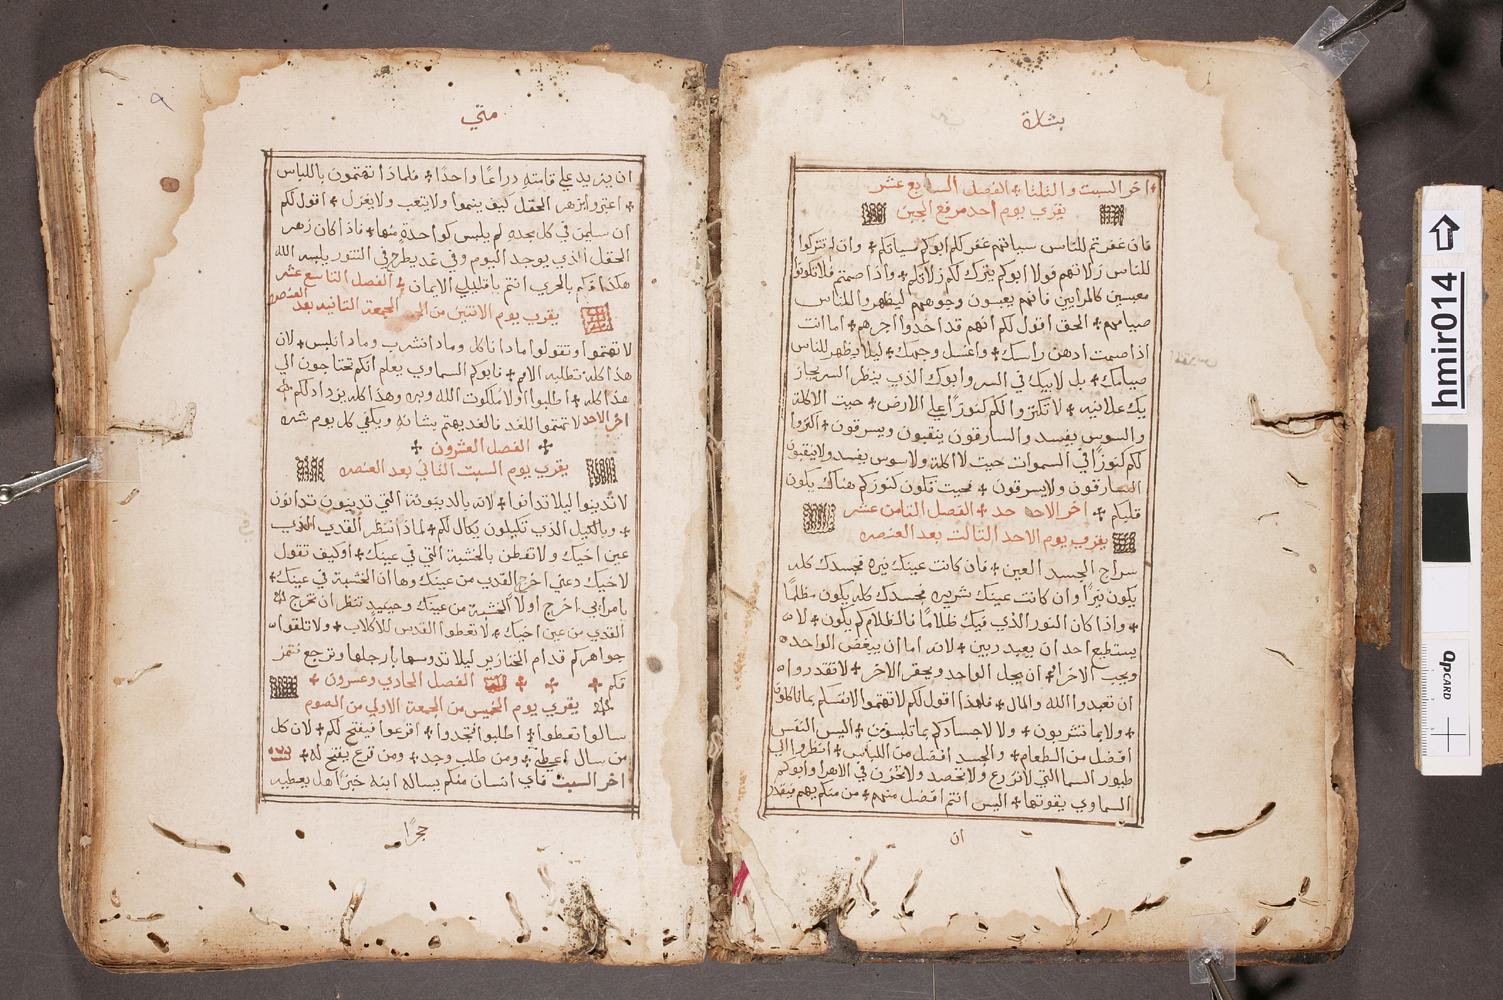 بشارة
✢ اخر السبت والثلثا ✢ الفصل السابع عشر
يقري يوم احد مرفع الجبن
فان غفرتم للناس سياتهم غفر لكم ابوكم سياتكم ✢ وان لم تتركوا
للناس زلاتهم فولا ابوكم يترك لكم زلاتكم ✢ واذا صمتم فلا تكونوا
معبسين كالمرايين فانهم يعبسون وجوههم ليظهروا للناس
صيامهم ✢ الحق اقول لكم انهم قد اخذوا اجرهم ✢ اما انت
اذا صمت ادهن راسك ✢ واغسل وجهك ✢ ليلا يظهر للناس
صيامك ✢ بل لابيك في السر وابوك الذي ينظر السر يجاز
يك علانيه ✢ لا تكنزوا لكم كنوزًا علي الارض ✢ حيث الاكلة
والسوس يفسد والسارقون ينقبون ويسرقون ✢ اكنزوا
لكم كنوزًا في السموات حيث لا اكلة ولا سوس يفسد ولا ينقبون
السارقون ولا يسرقون ✢ فحيث تكون كنوزكم هناك يكون
قلبكم ✢ اخر الاحد حد ✢ الفصل الثامن عشر
يقري يوم الاحد الثالث بعد العنصره
سراج الجسد العين ✢ فان كانت عينك نيره فجسدك كله
يكون نيرًا وان كانت عينك شريره فجسدك كله يكون مظلمًا
✢ واذا كان النور الذي فيك ظلامًا فالظلام كم يكون ✢ لا
يستطيع احد ان يعبد ربين ✢ لانه اما ان يبغض الواحد
ويحب الاخر ✢ او ان يجل الواحد ويحقر الاخر ✢ لا تقدروا
ان تعبدوا الله والمال ✢ فلهذا اقول لكم لا تهتموا لانفسكم بما تاكلون
✢ ولا بما تشربون ✢ ولا لاجسادكم بما تلبسون ✢ اليس النفس
افضل من الطعام ✢ والجسد افضل من اللباس ✢ انظروا الي
طيور السما التي لا تزرع ولا تحصد ولا تخزن في الاهرا وابوكم
السماوي يقوتها ✢ اليس انتم افضل منهم ✢ من منكم يهم فيقدر
ان
متي
ان يزيد علي قامته دراعًا واحدًا ✢ فلماذا تهتمون باللباس
✢ اعتبروا بزهر الحقل كيف ينموا ولا يتعب ولا يغزل ✢ اقول لكم
ان سليمن في كل مجده لم يلبس كواحدة منها ✢ فاذا كان زهر
الحقل الذي يوجد اليوم وفي غد يطرح في التنور يلبسه الله
هكذا فكم بالحري انتم يا قليلي الايمان ✢ الفصل التاسع عشر
يقري يوم الاثنين من الجمعة الثانيه بعد العنصره
لا تهتموا وتقولوا ماذا ناكل وماذا نشرب وماذا نلبس ✢ لان
هذا كله تطلبه الامم ✢ فابوكم السماوي يعلم انكم تحتاجون الي
هذا كله ✢ اطلبوا اولا ملكوت الله وبره وهذا كله يزداد لكم ✢
اخر الاحد لا تهتموا للغد فالغد يهتم بشانه ويكفي كل يوم شره
✢ الفصل العشرون ✢
يقري يوم السبت الثاني بعد العنصره
لا تُدينوا ليلا تدانوا ✢ لانه بالدينونة التي تدينون تدانون
✢ وبالكيل الذي تكيلون يكال لكم ✢ لماذا تنظر القدي الذي
عين اخيك ولا تفطن بالخشبة التي في عينك ✢ او كيف تقول
لاخيك دعني اخرج القدي من عينك وها ان الخشبة في عينك ✢
يا مرايي اخرج اولًا الخشبة من عينك وحينيدٍ تنظر ان تخرج
القدي من عين اخيك ✢ لا تعطوا القدس للكلاب ✢ ولا تلقوا
جواهركم قدام الخنازير ليلا تدوسها بارجلها وترجع فتمز
قكم ✢ ✢ ✢ الفصل الحادي وعشرون ✢
يقري يوم الخميس من الجمعة الاولي من الصوم
سالوا تعطوا ✢ اطلبوا تجدوا ✢ اقرعوا فيفتح لكم ✢ لان كل
من سال اعيطه ✢ ومن طلب وجد ✢ ومن قرع يفتح له ✢
اخر السبت فاي انسان منكم يساله ابنه خبزًا هل يعطيه
حجرًا
hmir014
QPCARD